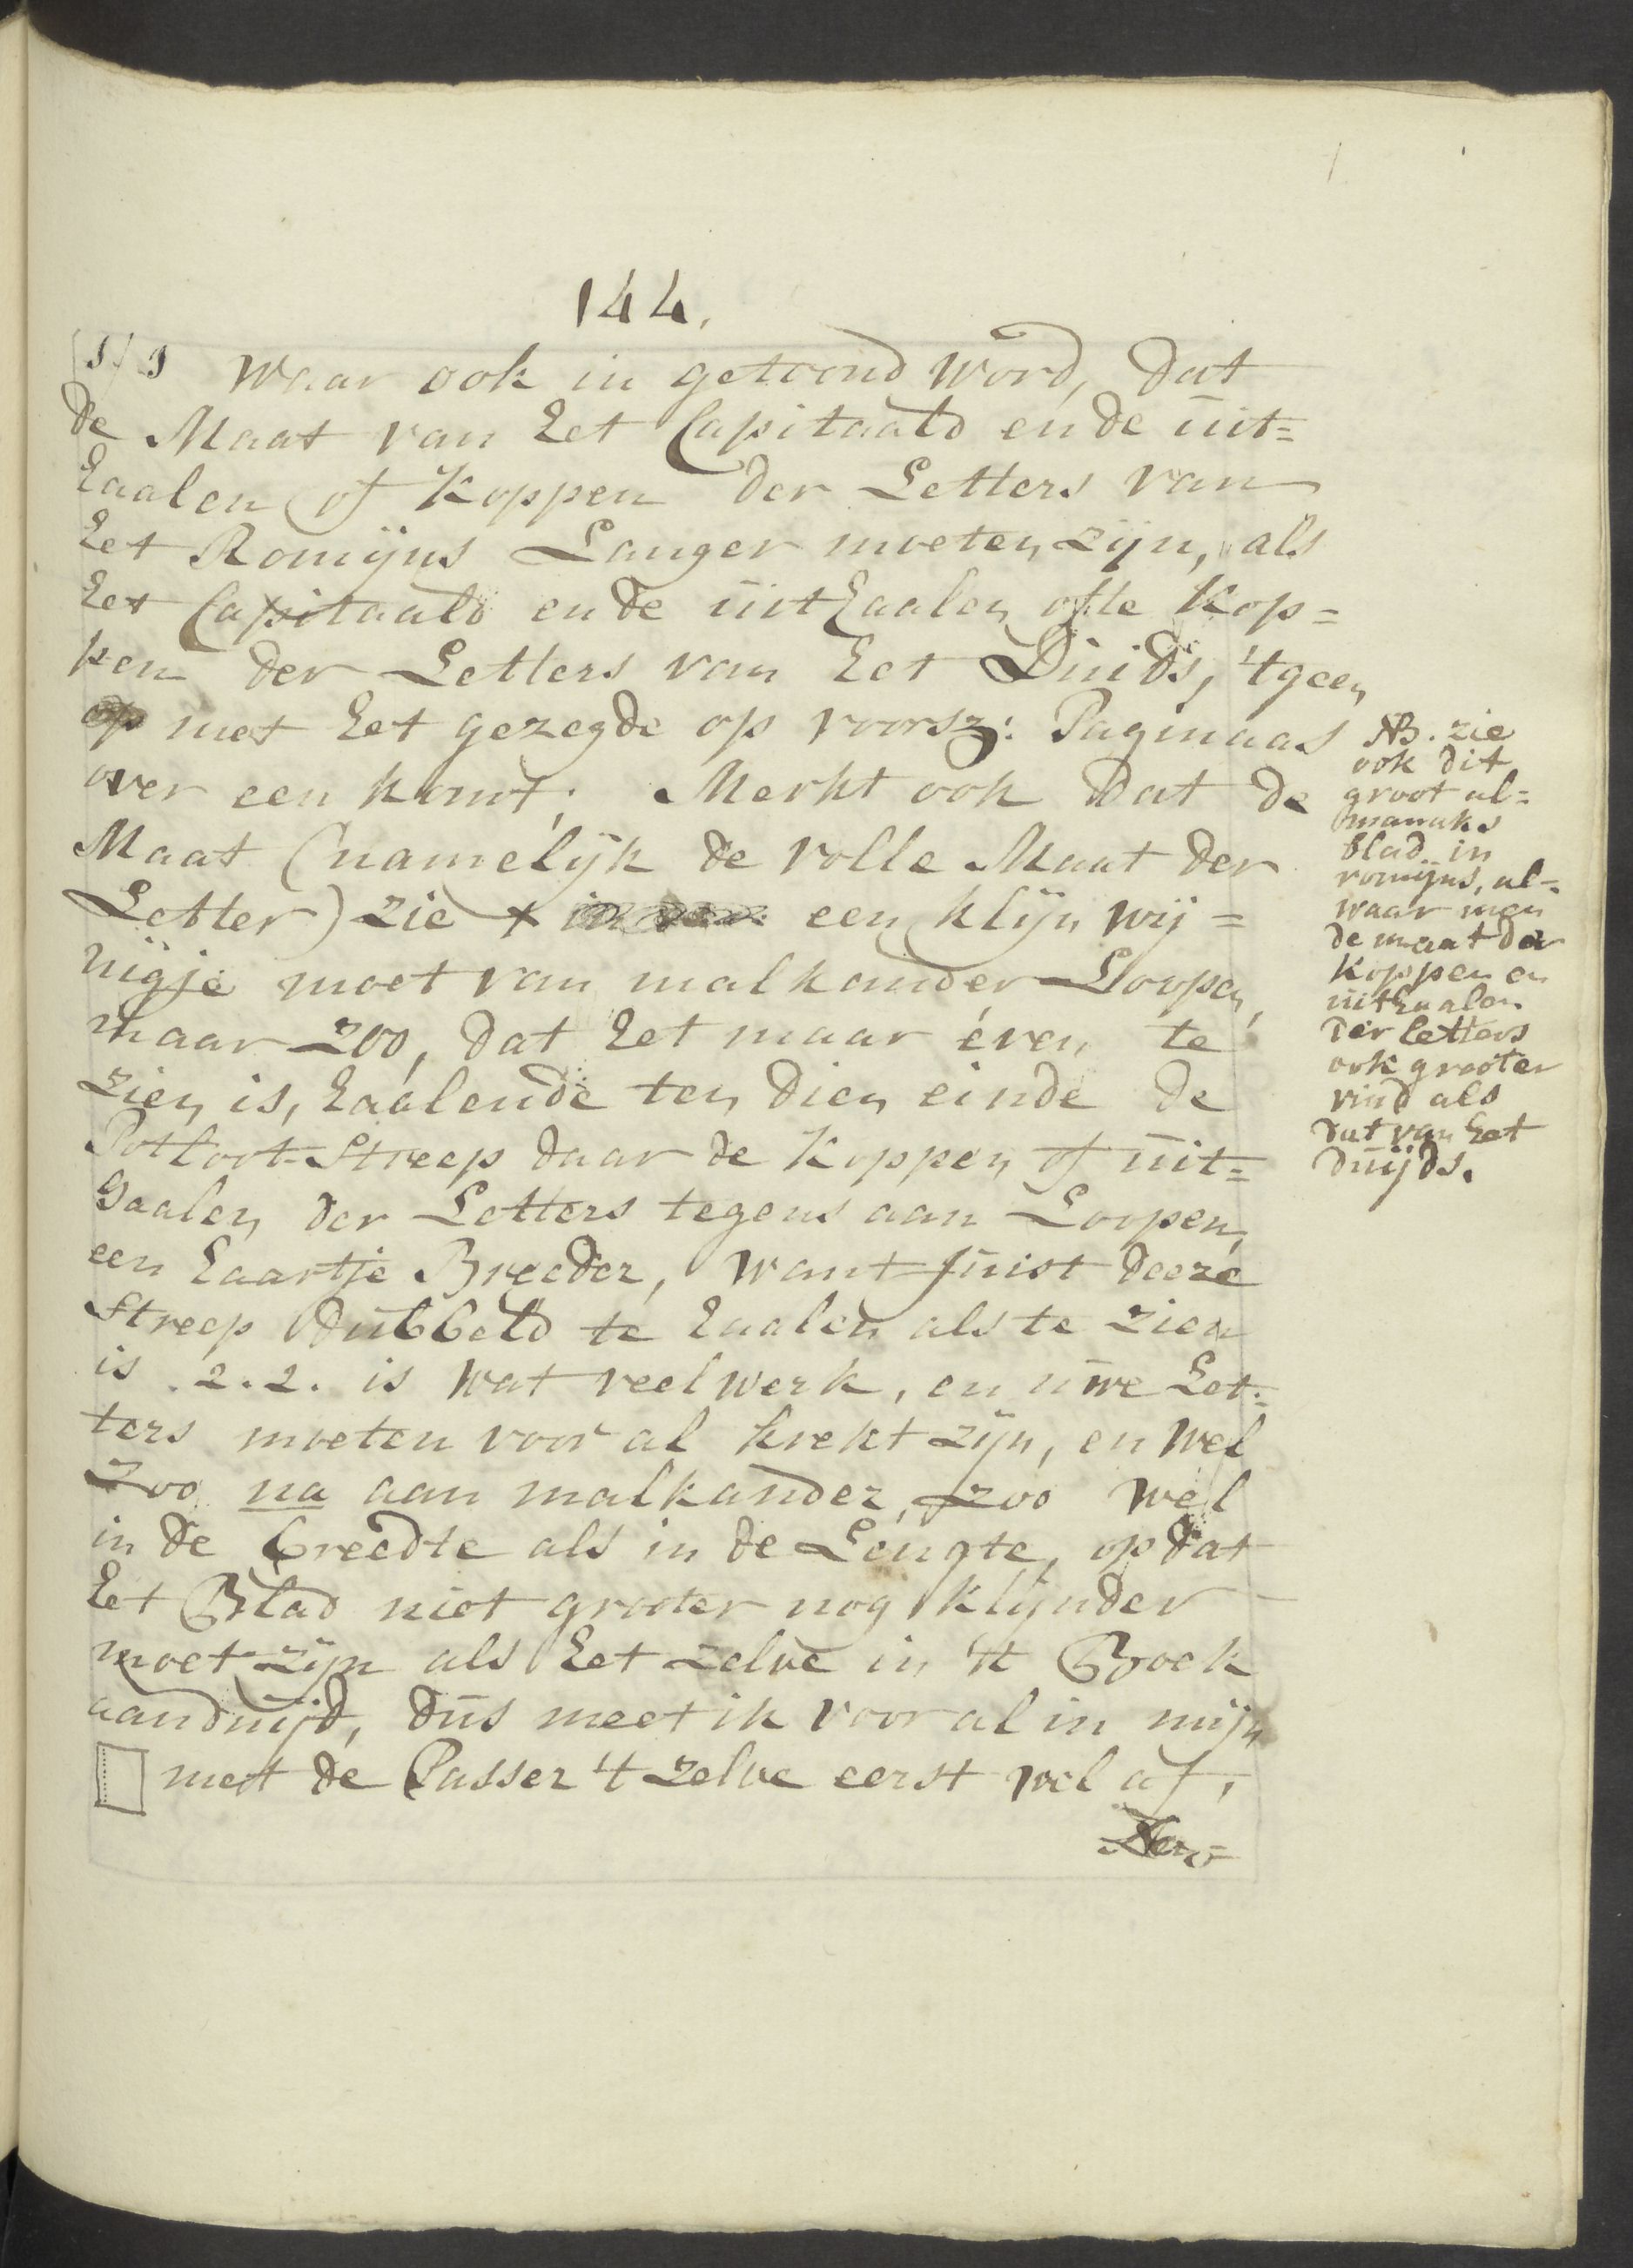 144.
Waar ook in getoond word, dat
de Maat van het Capitaald en de uit=
haalen of koppen der Letters van
het Romijns Langer moeten zijn, als
het Capitaald en de uithaalen ofte kop=
pen der Letters van het Duids, 'tgeen
op met het gezegde op voorsz: Paginaas
over een komt; Merkt ook dat de
Maat (namelijk de volle Maat der
Letter) zie + in een klijn wij=
nigje moet van malkander Loopen,
maar zoo, dat het maar even te
zien is, haalende ten dien einde de
Potloot-Streep daar de koppen of uit=
haalen der Letters tegens aan Loopen,
een haartje Breeder, want juist deeze
Streep dubbeld te haalen als te zien
is .2.2. is wat veel werk, en uwe Let=
ters moeten voor al krekt zijn, en wel
zoo na aan malkander, zoo wel
in de breedte als in de Lengte, op dat
het Blad niet grooter nog klijnder
moet zijn als het zelve in 't Boek
aanduijd, dus meet ik voor al in mijn
met de Passer 't zelve eerst wel af,
NB. zie
ook dit
groot al=
manaks
blad in
romijns, al=
waar men
de maat der
koppen en
uithaalen
der letters
ook grooter
vind als
dat van het
duijds.